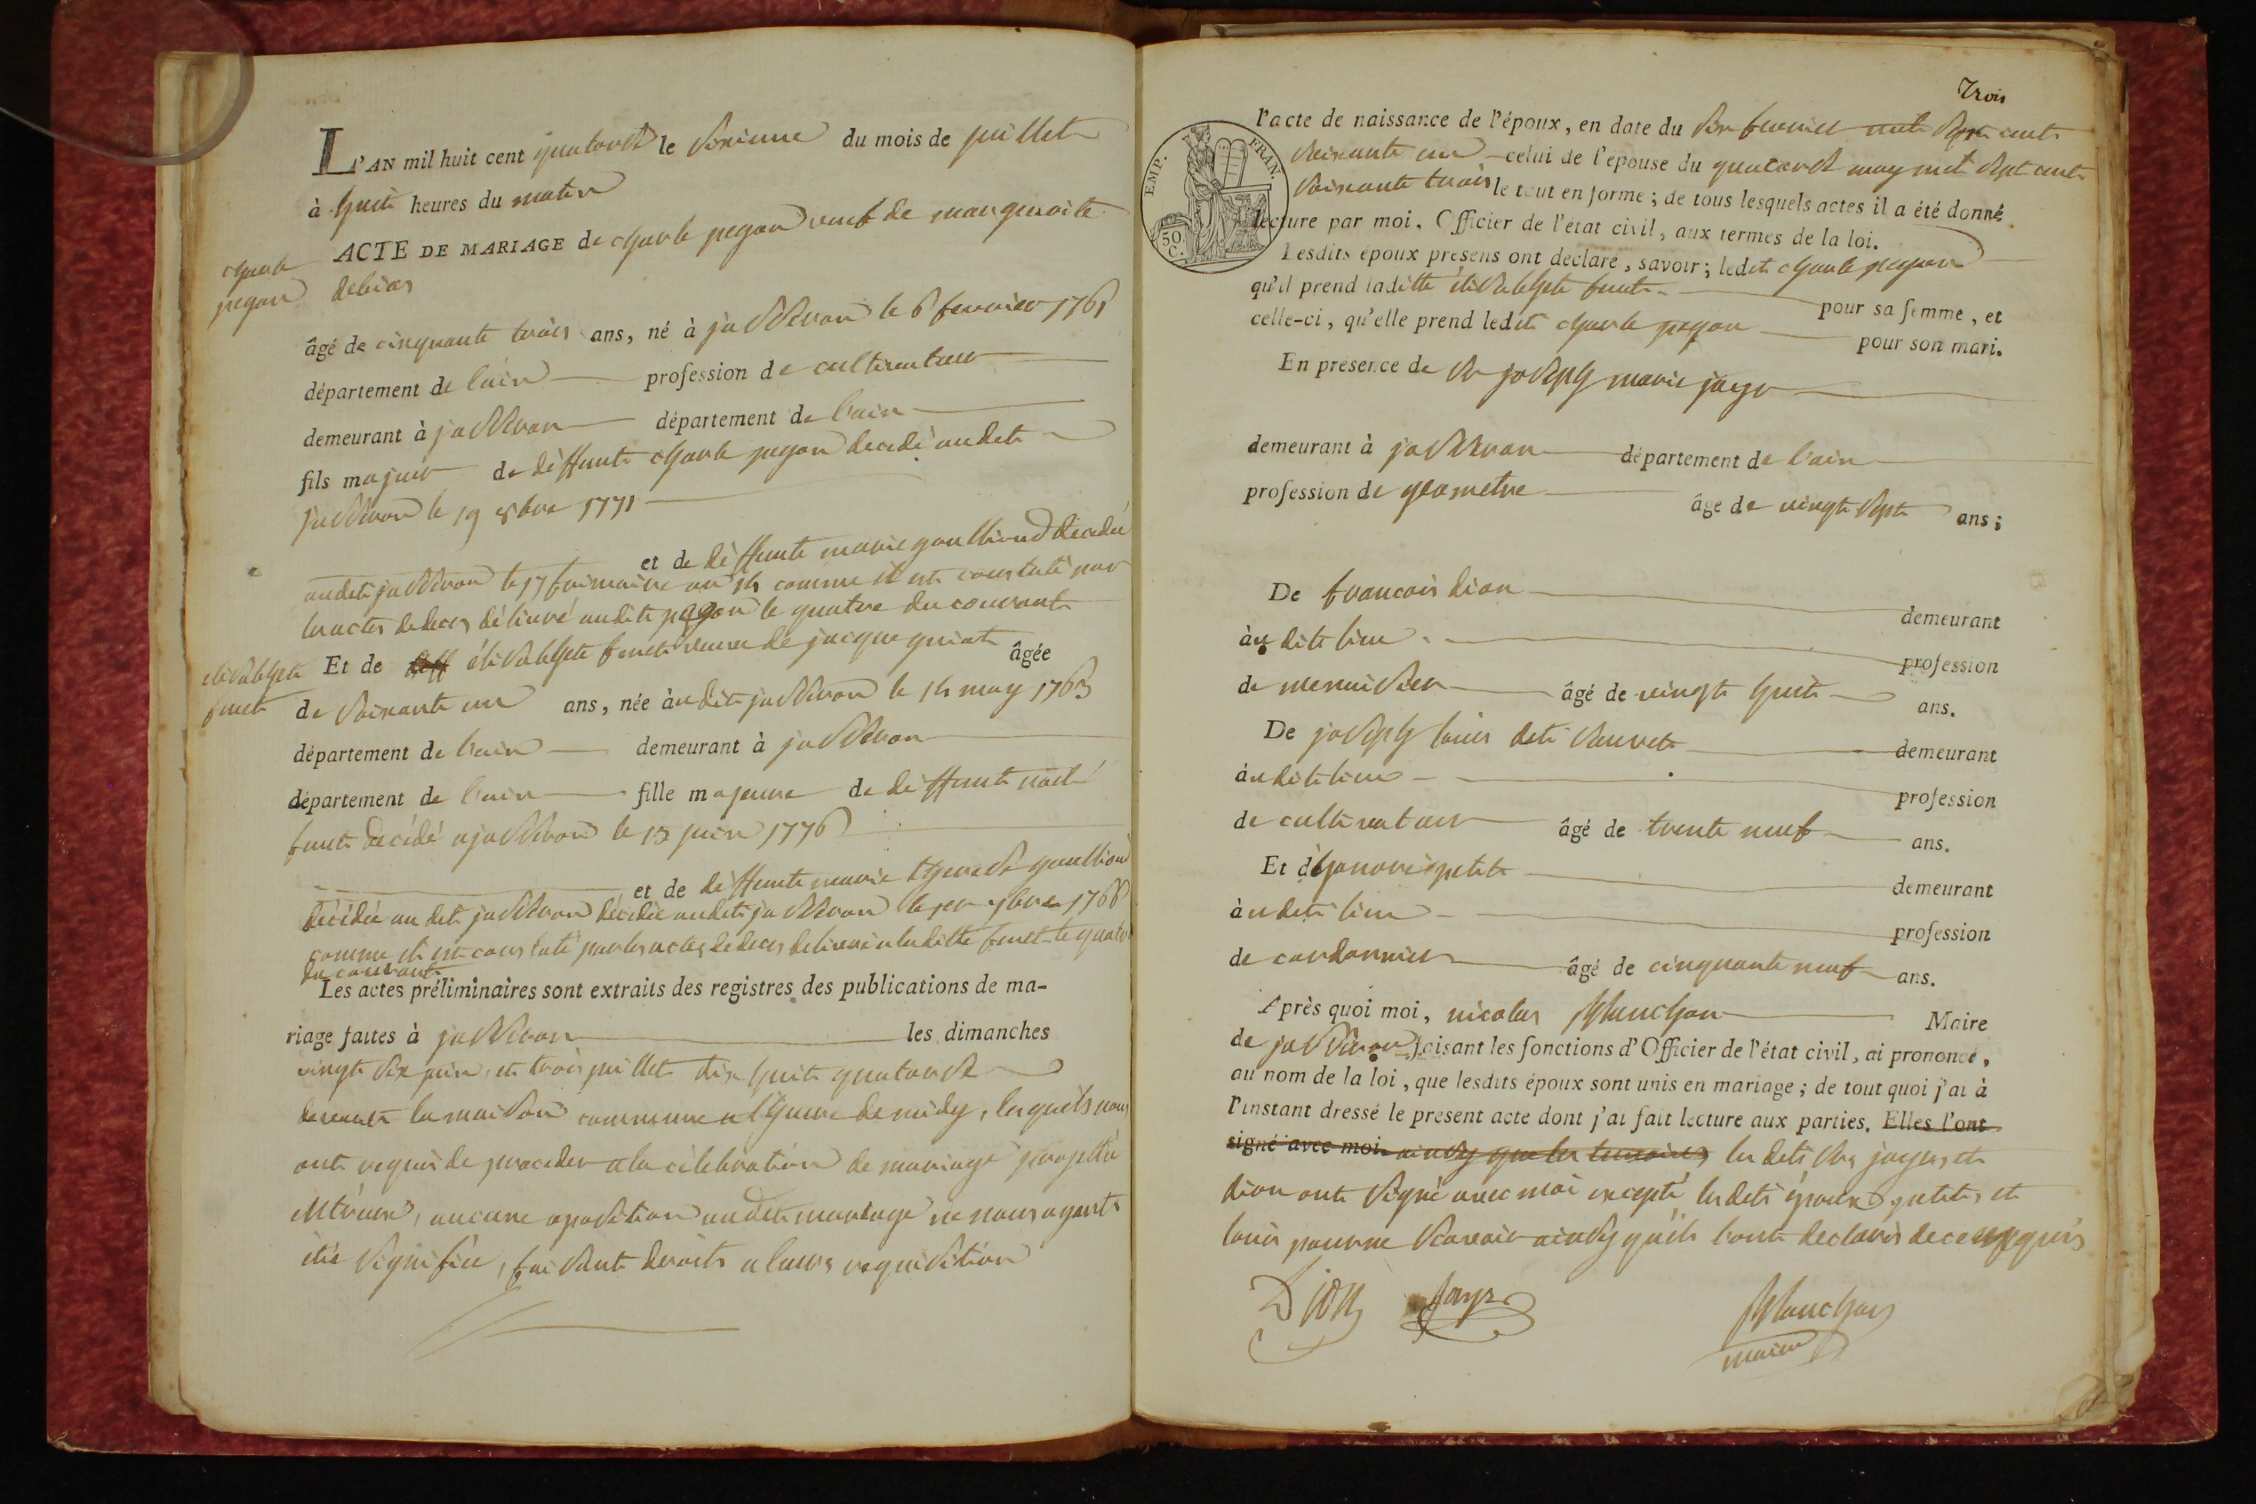 L'AN mil huit cent quatorze le sixieme du mois de juillet
à huit heures du matin
ACTE DE MARIAGE de charle pegon veuf de marguerite
charle
pegon
debias
âgé de cinquante trois ans, né à jasseron le 6 fevrier 1761
département de l'ain profession de cultivateur
demeurant à jasseron département de l'ain
fils majeur de deffunt charle pegon decedé audit
jasseron le 19 8bre 1771
et de deffunte marie goullioud décédée
audit jasseron le 17 frimaire an 14 comme il est constaté par
les actes de deces délivré audit pegon le quatre du courant
elisabhete
furet
Et de deff élisabhete furet veuve de jacque guiat âgée
de soixante un ans, née audit jasseron le 14 may 1763
département de l'ain demeurant à jasseron
département de l'ain fille majeure de deffunt noël
furet décédé a jasseron le 13 juin 1776
et de deffunte marie therese goullioud
décédée au dit jasseron décédée audit jasseron le 1er 9bre 1768
comme il est constaté par les actes de deces delivré a laditte furet le quatre
du courant
Les actes préliminaires sont extraits des registres des publications de ma-
riage faites à jasseron les dimanches
vingt six juin, et trois juillet dix huit quatorze
devant la maison commune a l'heure de midy, lesquels nous
ont requis de proceder a la célébration de mariage projetté
entreux, aucune oposition audit mariage ne nous ayant
été signifiée, faisant droits a leurs requisition
Trois
EMP. FRAN.
50
C.
l'acte de naissance de l'époux, en date du six fevrier mil sept cent
soixante un celui de l'epouse du quatorze may mil sept cent
soixante trois le tout en forme ; de tous lesquels actes il a été donné
lecture par moi, Officier de l'état civil, aux termes de la loi.
Lesdits époux présens ont déclaré, savoir ; ledit charle pegon
qu'il prend laditte élisabhete furet pour sa femme, et
celle-ci, qu'elle prend ledit charle pegon pour son mari.
En présence de sr joseph marie jayr
demeurant à jasseron département de l'ain
profession de géometre âgé de vingt sept ans ;
De francois dion demeurant
audit lieu profession
de menuisier âgé de vingt huit ans.
De joseph louis dit sauvet demeurant
audit lieu profession
de cultivateur âgé de trente neuf ans.
Et d'honoré petit demeurant
audit lieu profession
de cordonnier âgé de cinquante neuf ans.
Après quoi moi, nicolas planchon Maire
de jasseron faisant les fonctions d'Officier de l'état civil, ai prononcé,
au nom de la loi, que lesdits époux sont unis en mariage ; de tout quoi j'ai à
l'instant dressé le présent acte dont j'ai fait lecture aux parties. Elles l'ont
signé avec moi ainsy que les temoins les dits srs jayr, et
dion ont signé avec moi excepté lesdits époux petit, et
louis pour ne scavoir ainsy qu'ils l'ont declaré de ce enquis
Dion Jayr Planchon
maire